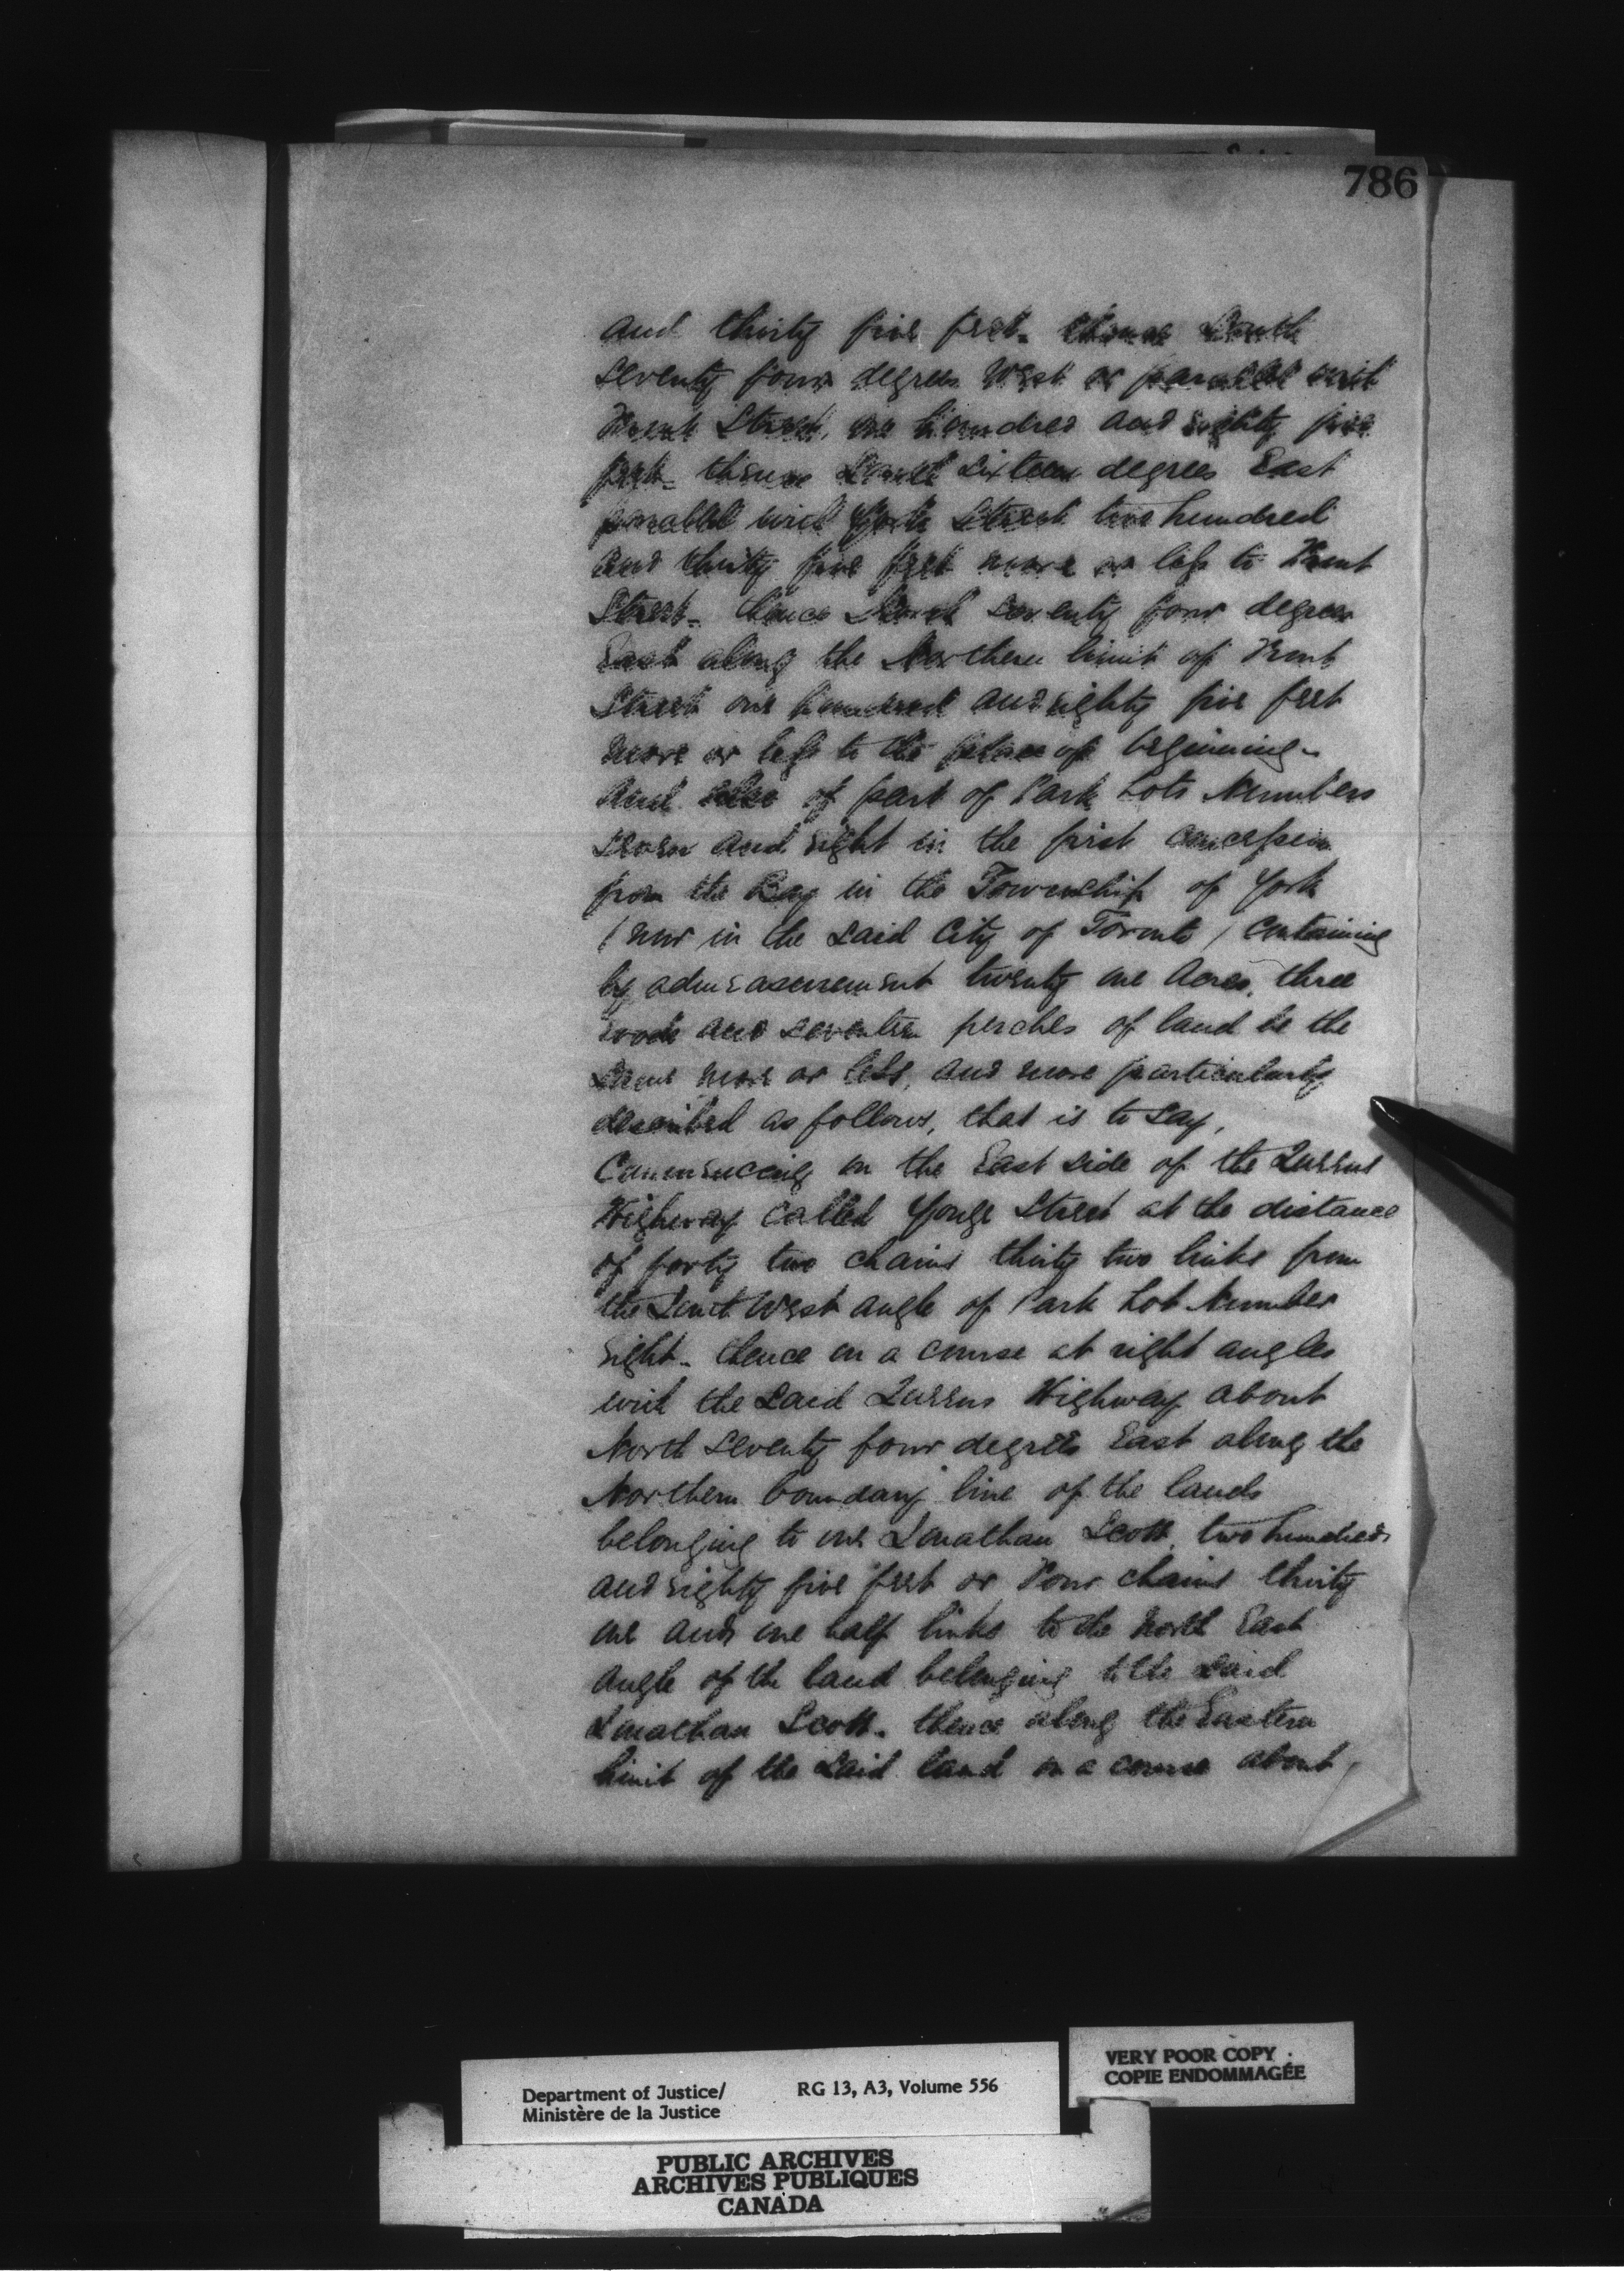 786
and thirty five feet. thence South
seventy four degrees West or parallel with
Front Street, one hundred and eighty five
feet. thence South sixteen degrees East
parallel with York Street two hundred
and thirty five feet more or less to Front
Street. thence North seventy four degrees
East along the Northern limit of Front
Street one hundred and eighty five feet
more or less to the place of beginning.
And also of part of Park Lots Numbers
seven and eight in the first concession
from the Bay in the Township of York
(now in the said City of Toronto) containing
by admeasurement twenty one Acres, three
roods and seventeen perches of land be the
same more or less, and more particularly
described as follows, that is to say,
Commencing on the East side of the Queens
Highway called Yonge Street at the distance
of forty two chains thirty two links from
the South West angle of Park Lot Number
eight. thence on a course at right angles
with the said Queens Highway about
North seventy four degrees East along the
Northern boundary line of the lands
belonging to one Jonathan Scott, two hundred
and eighty five feet or Four chains thirty
one and one half links to the North East
angle of the land belonging to the said
Jonathan Scott. thence along the Eastern
limit of the said land on a course about
Department of Justice/ RG 13, A3, Volume 556
Ministère de la Justice
VERY POOR COPY
COPIE ENDOMMAGÉE
PUBLIC ARCHIVES
ARCHIVES PUBLIQUES
CANADA